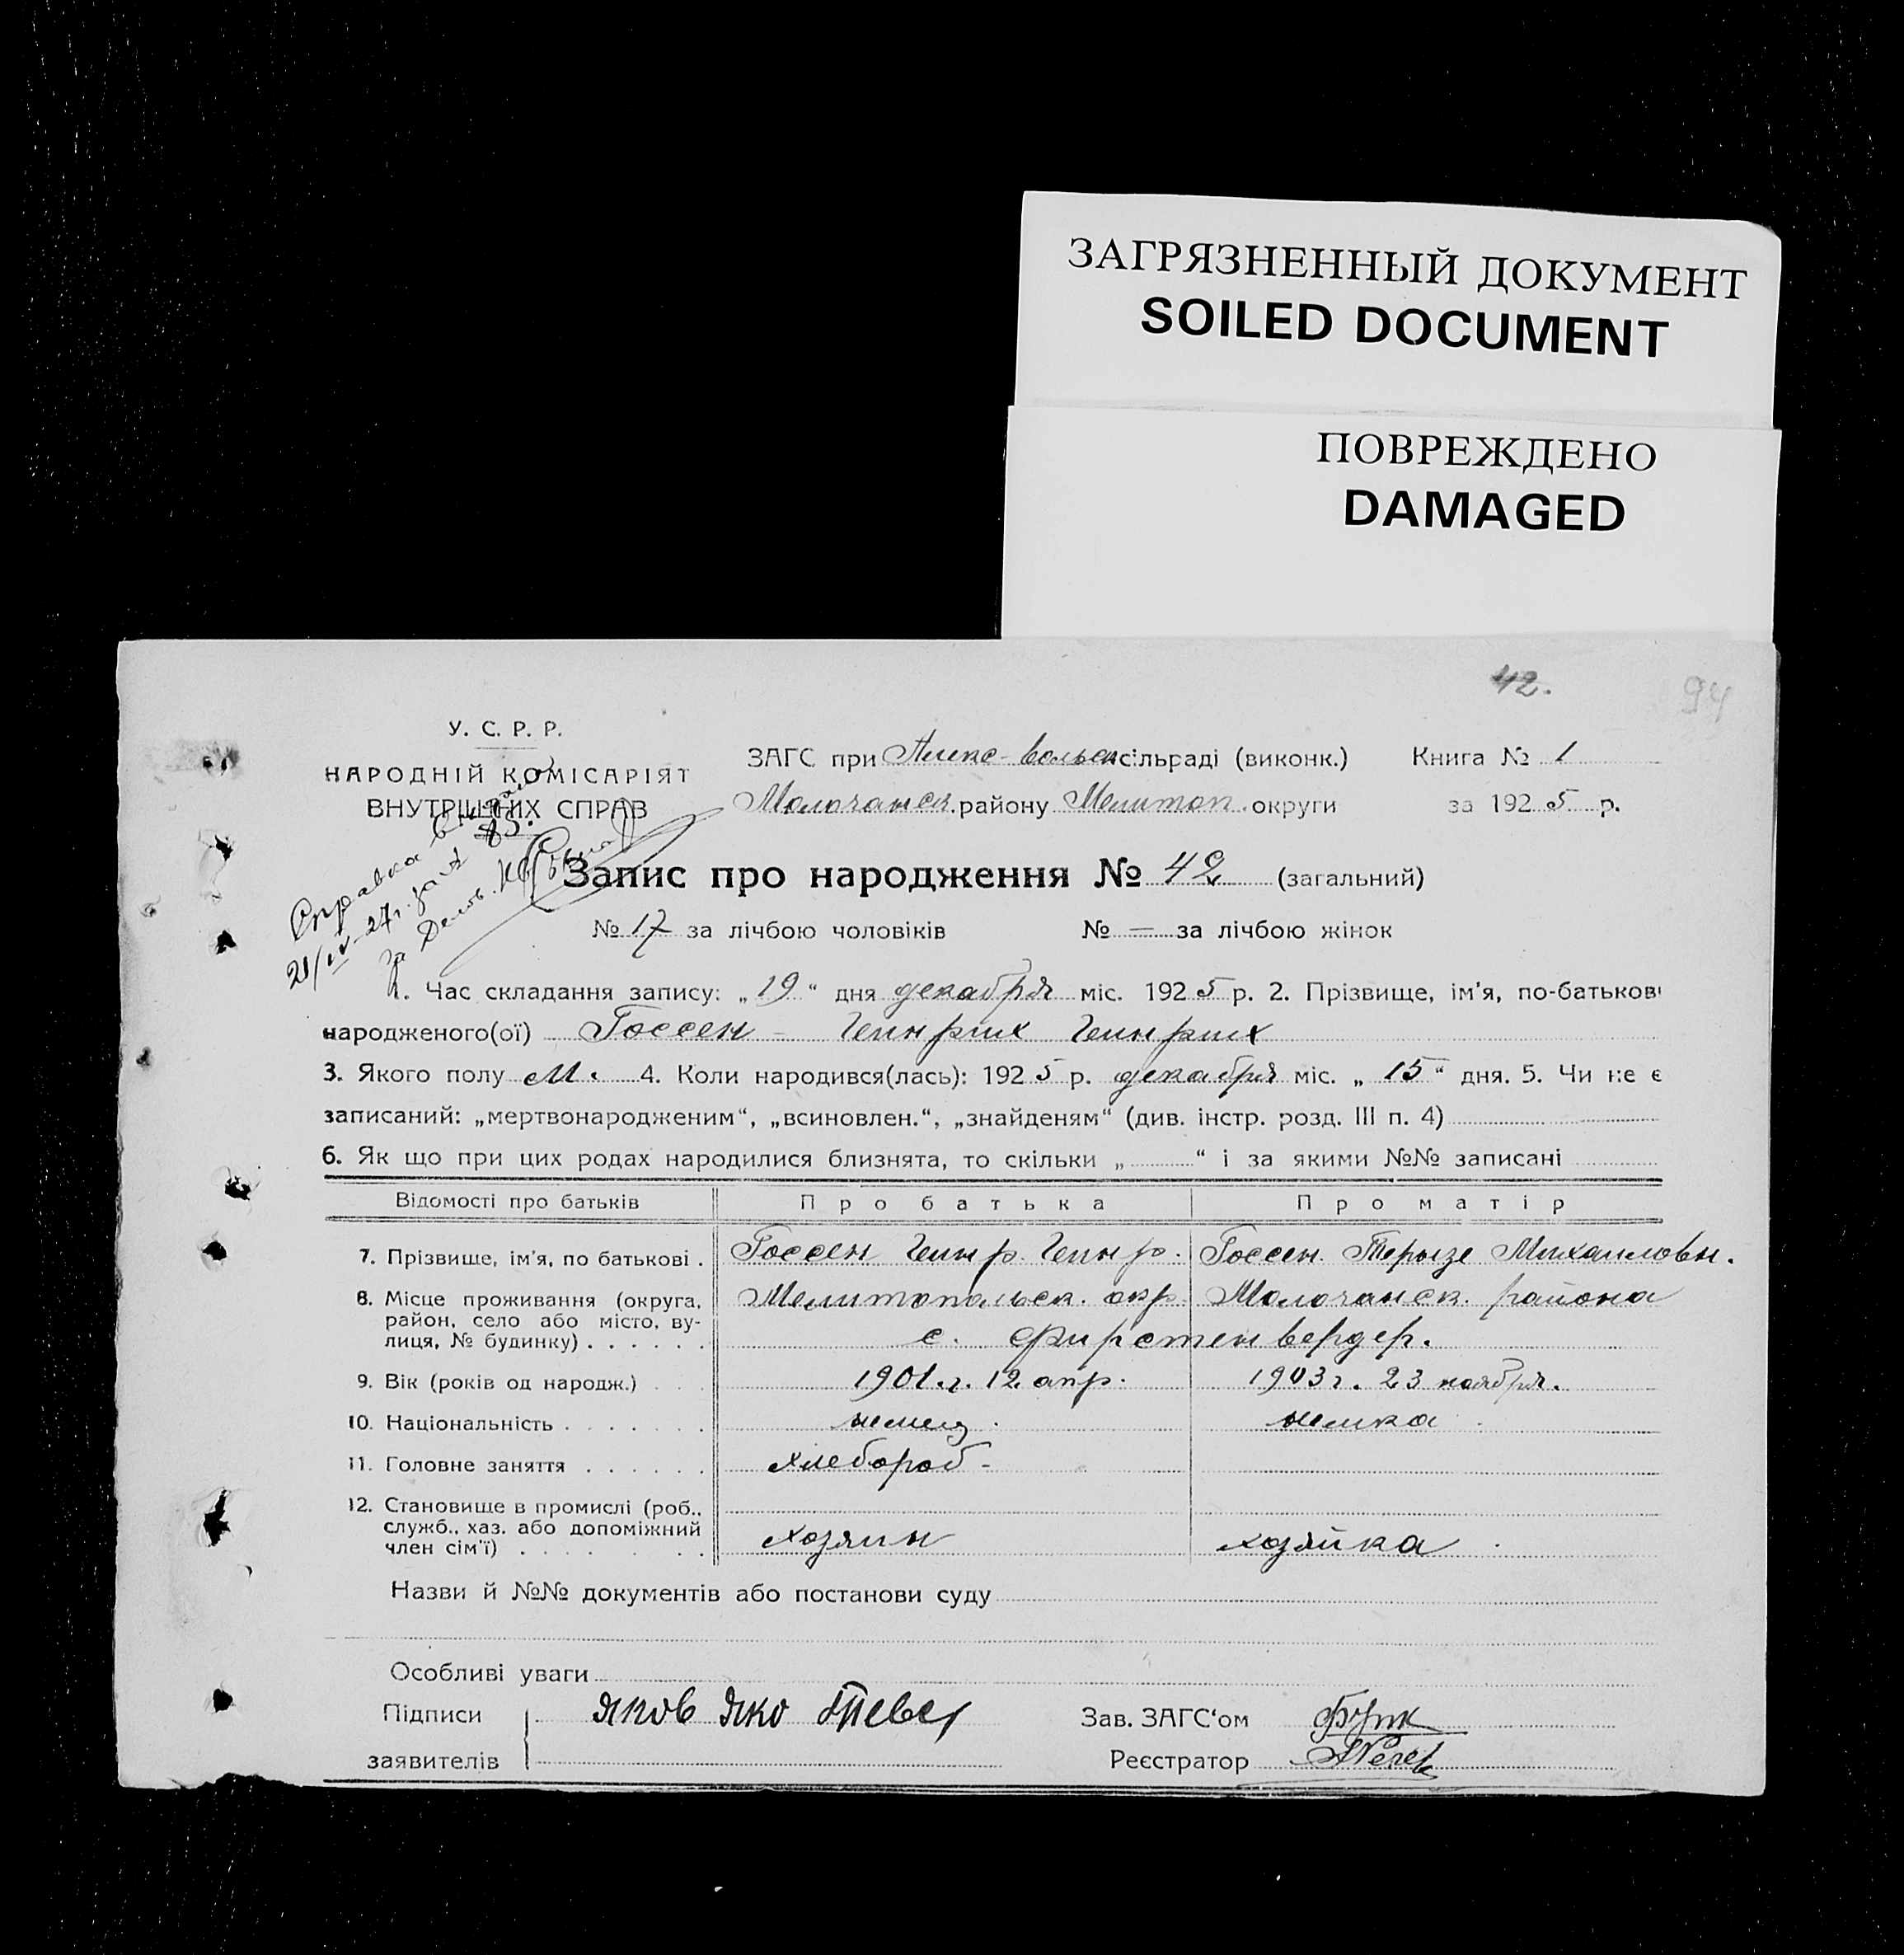 ЗАГРЯЗНЕННЫЙ ДОКУМЕНТ
SOILED DOCUMENT
ПОВРЕЖДЕНО
DAMAGED
42.
94
У. С. Р. Р.
НАРОДНІЙ КОМІСАРІЯТ
ВНУТРІШНІХ СПРАВ
ЗАГС при сільраді (виконк.) Книга № 1
Молочанск. району Мелитоп. округи за 1925 р.
Справка
21/IV-27г. за №
Запис про народження № 42 (загальний)
№ 17 за лічбою чоловіків № — за лічбою жінок
1. Час складання запису: „19“ дня декабря міс. 1925 р. 2. Прізвище, ім'я, по-батькові
народженого(ої) Госсен - Гейнрих Гейнрих
3. Якого полу М. 4. Коли народився(лась): 1925 р. декабря міс. „15“ дня. 5. Чи не є
записаний: „мертвонародженим“, „всиновлен.“, „знайденям“ (див. інстр. розд. III п. 4)
6. Як що при цих родах народилися близнята, то скільки „ “ і за якими №№ записані
Відомості про батьків Про батька Про матір
7. Прізвище, ім'я, по батькові . Госсен Гейнр. Гейнр. Госсен. Терызе Михаиловн.
8. Місце проживання (округа, Мелитопольск. окр. Молочанск. района
район, село або місто, ву-
лиця, № будинку) . . . . . . с. Фирстенвердер.
9. Вік (років од народж.) . . . 1901.г. 12 апр. 1903 г. 23 ноября.
10. Національність . . . . . . . немец. немка
11. Головне заняття . . . . . . хлебороб -
12. Становище в промислі (роб.,
служб., хаз. або допоміжний
член сім'ї) . . . . . . . хозяин хозяйка
Назви й №№ документів або постанови суду
Особливі уваги
Підписи Яков Яко Зав. ЗАГС'ом
заявителів Реєстратор